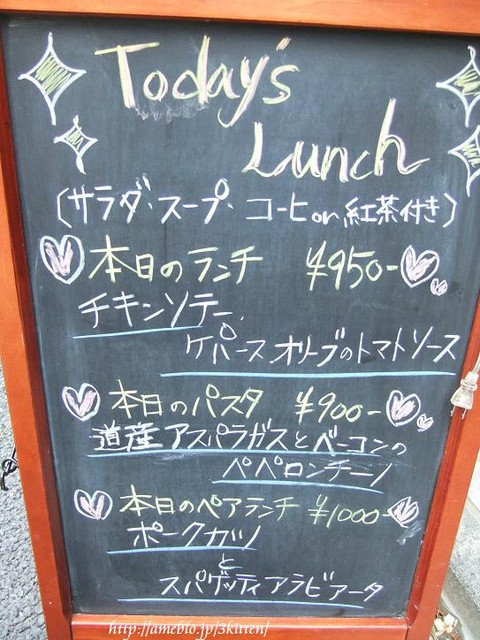 Today's
Lunch
(サラダ・スープ・コーヒor紅茶付き)
本日のランチ ¥950-
チキンソテー、
ケパースオリーブのトマトソース
本日のパスタ ¥900-
道産アスパラガスとベーコンの
ペペロンチーノ
本日のペアランチ ¥1000-
ポークカツ
と
スパゲッティアラビアータ
http://ameblo.jp/3kitten/